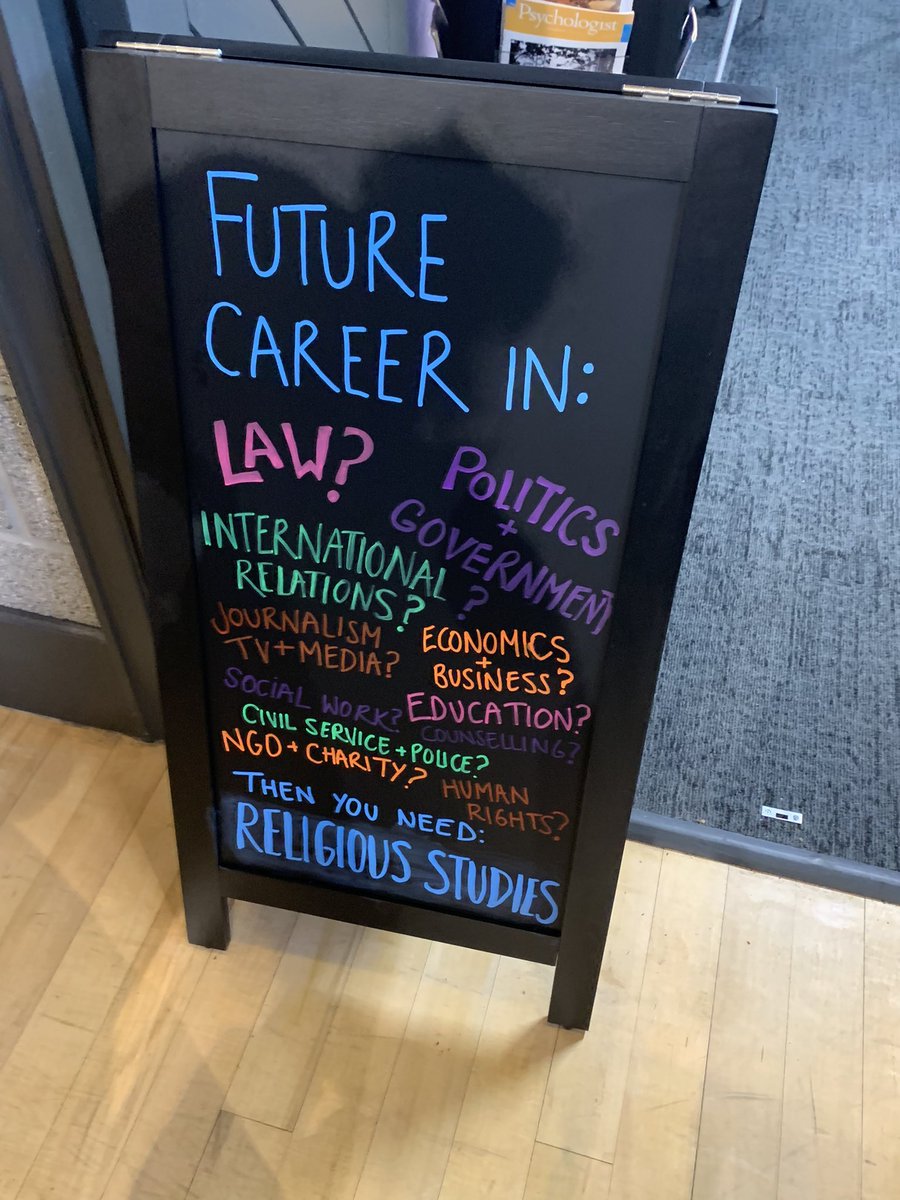 Psychologist
FUTURE
CAREER IN:
LAW?
POLITICS
+
GOVERNMENT
?
INTERNATIONAL
RELATIONS?
JOURNALISM
TV + MEDIA?
ECONOMICS
+
BUSINESS?
SOCIAL WORK?
EDUCATION?
COUNSELLING?
CIVIL SERVICE + POLICE?
NGO + CHARITY?
HUMAN
RIGHTS?
THEN YOU NEED:
RELIGIOUS STUDIES